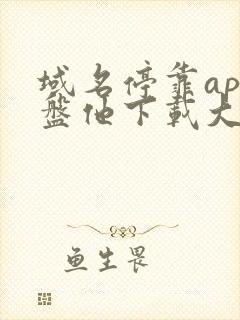 域名停靠ap
盘他下载大
鱼生畏